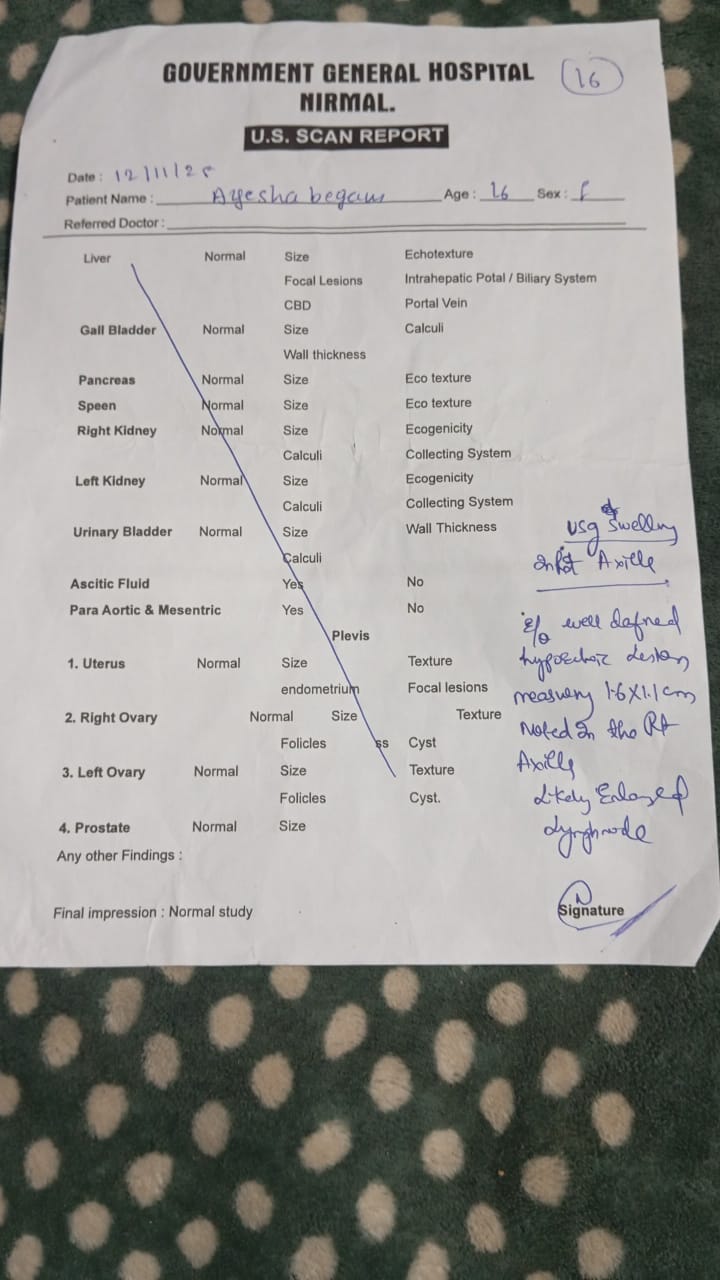 GOVERNMENT GENERAL HOSPITAL
NIRMAL.
16
U.S. SCAN REPORT
Date : 12/11/25
Patient Name : Ayesha begam Age : 16 Sex : f
Referred Doctor :
Liver Normal Size Echotexture
Focal Lesions Intrahepatic Potal / Biliary System
CBD Portal Vein
Gall Bladder Normal Size Calculi
Wall thickness
Pancreas Normal Size Eco texture
Speen Normal Size Eco texture
Right Kidney Normal Size Ecogenicity
Calculi Collecting System
Left Kidney Normal Size Ecogenicity
Calculi Collecting System
Urinary Bladder Normal Size Wall Thickness
Calculi
Ascitic Fluid Yes No
Para Aortic & Mesentric Yes No
Plevis
1. Uterus Normal Size Texture
endometrium Focal lesions
2. Right Ovary Normal Size Texture
Follicles ss Cyst
3. Left Ovary Normal Size Texture
Follicles Cyst.
4. Prostate Normal Size
Any other Findings :
Final impression : Normal study
USG Swelling
Axilla
E/o well defined
hypoechoic lesion
measuring 1.6x1.1cm
Noted in the Rt
Axilla
Likely Enlarged
Lymphnode
Signature